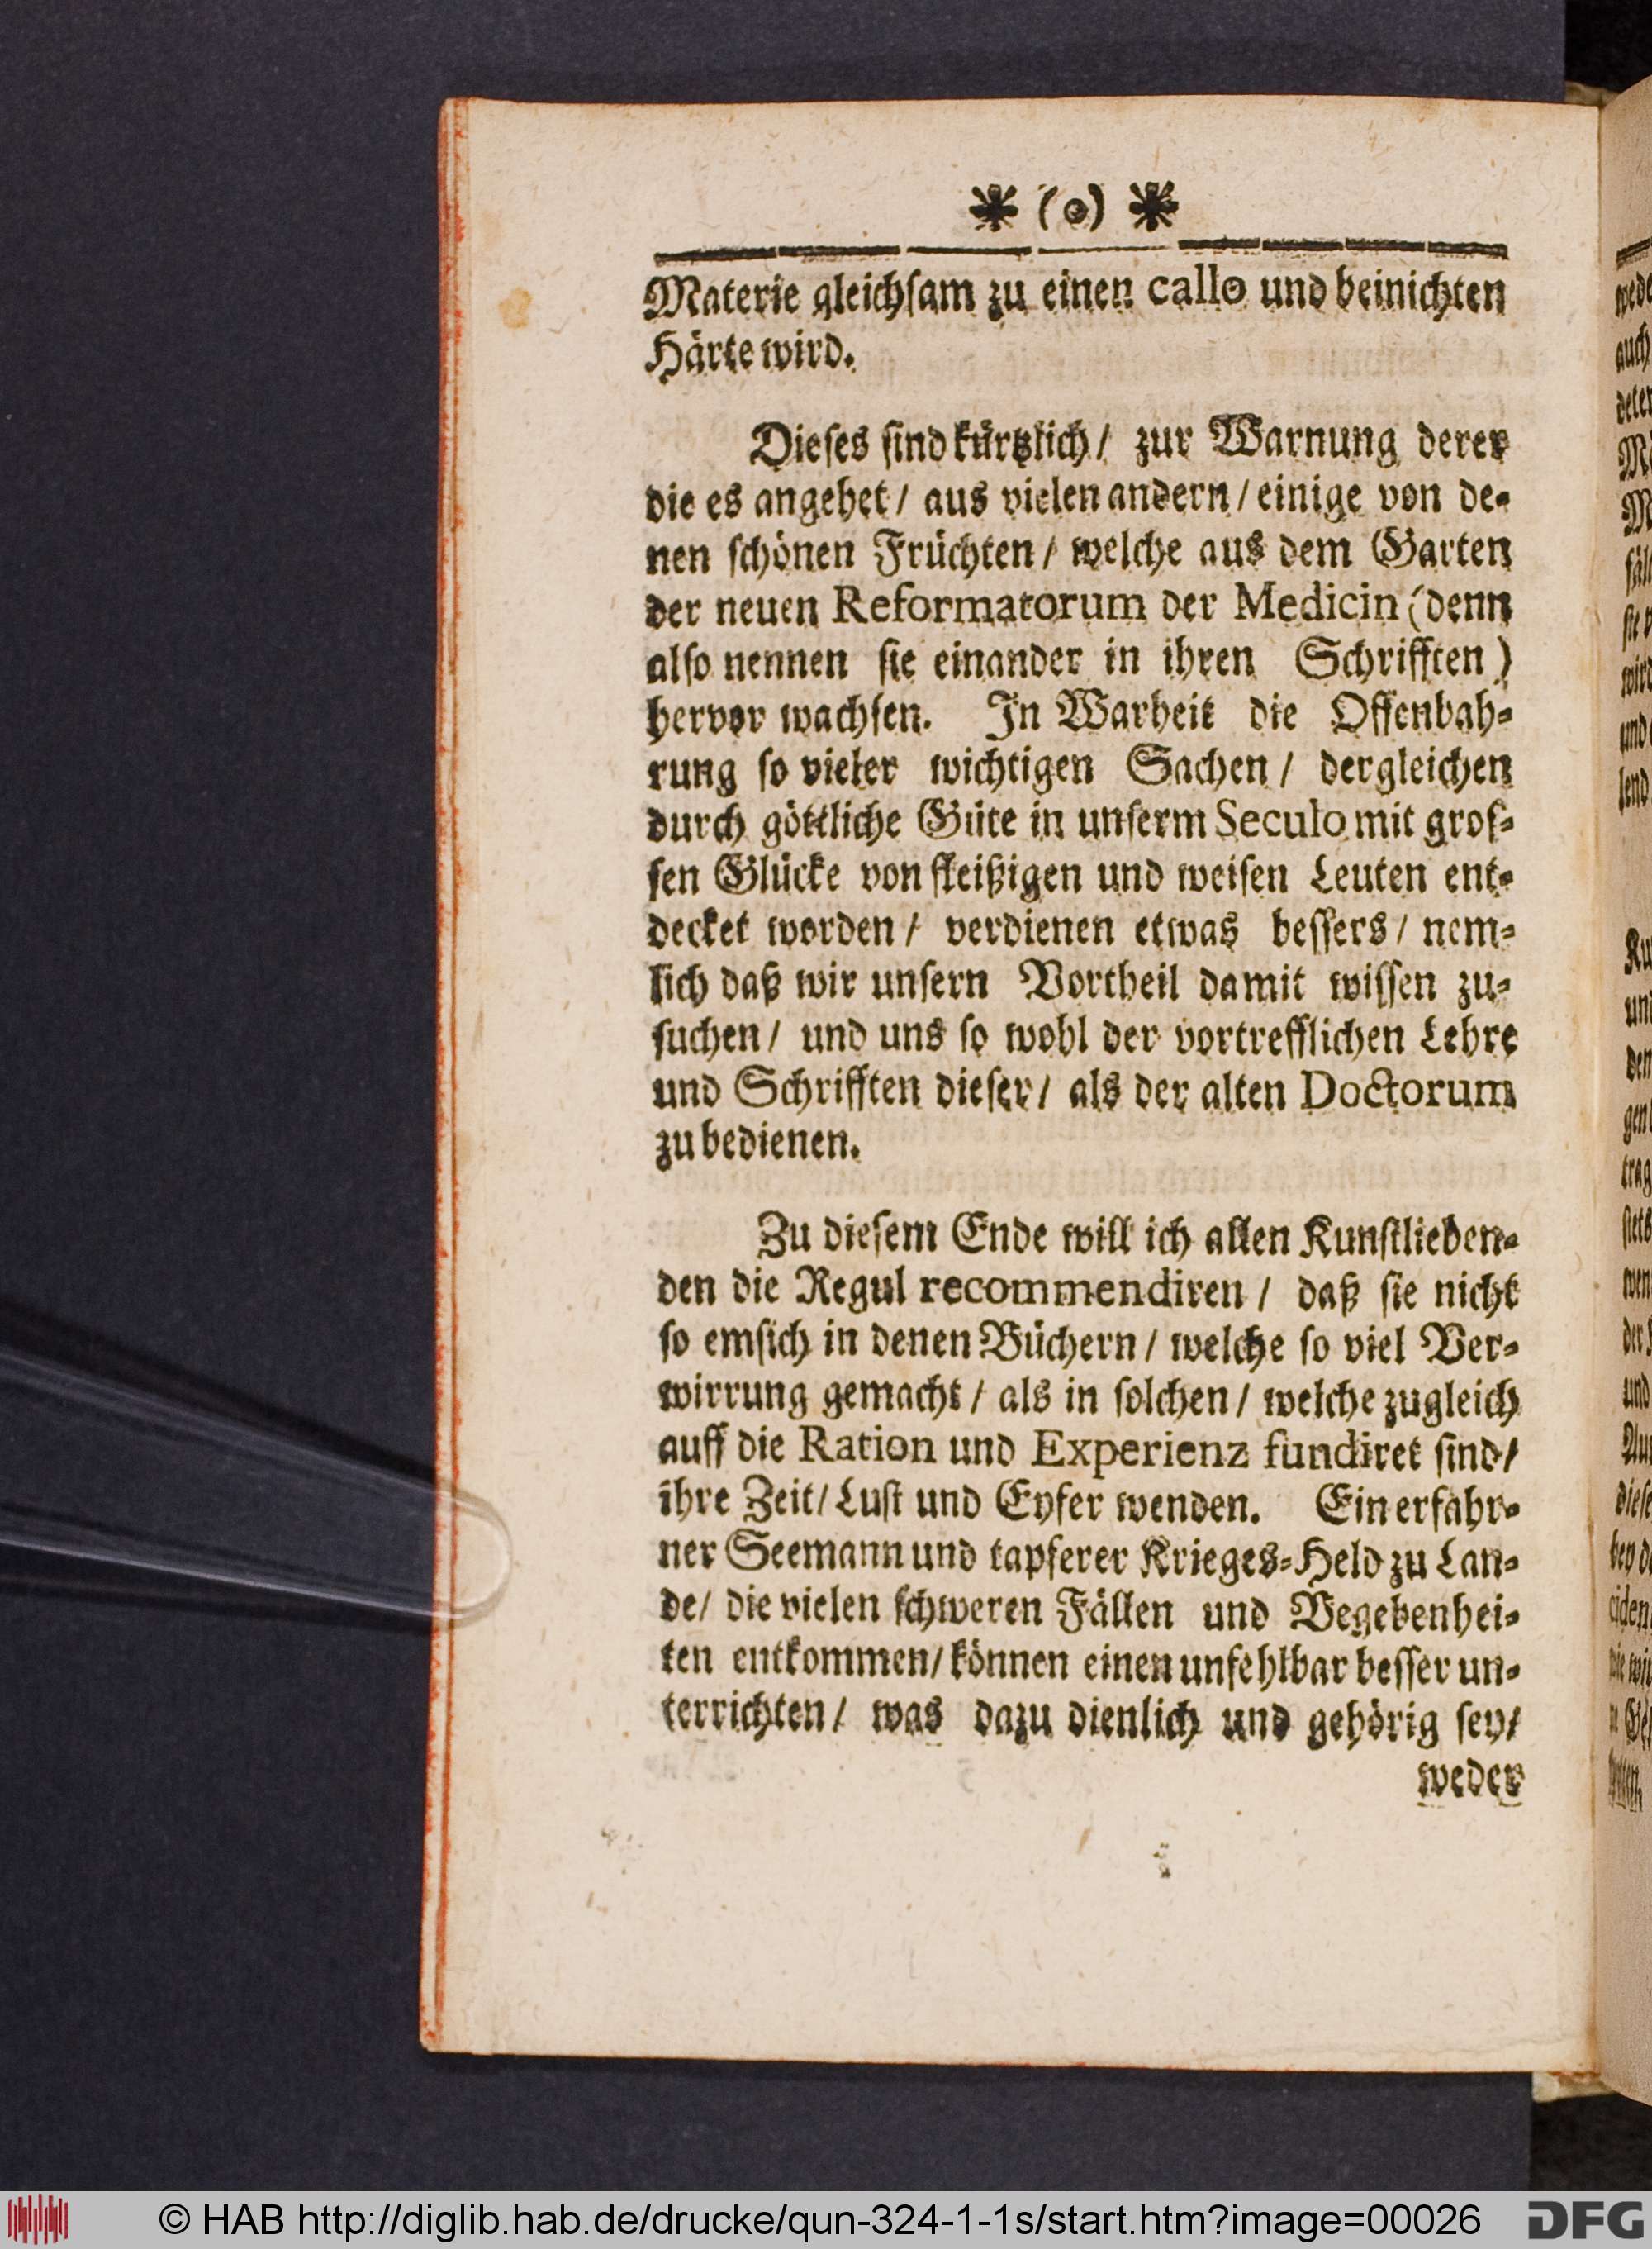 * (o) *
Materie gleichſam zu einen callo und beinichten
Härte wird.
Dieſes ſind kürtzlich / zur Warnung derer
die es angehet / aus vielen andern / einige von de-
nen ſchönen Früchten / welche aus dem Garten
der neuen Reformatorum der Medicin (denn
alſo nennen ſie einander in ihren Schrifften)
hervor wachſen. In Warheit die Offenbah-
rung ſo vieler wichtigen Sachen / dergleichen
durch göttliche Güte in unſerm Seculo mit groſ-
ſen Glücke von fleißigen und weiſen Leuten ent-
decket worden / verdienen etwas beſſers / nem-
lich daß wir unſern Vortheil damit wiſſen zu-
ſuchen / und uns ſo wohl der vortrefflichen Lehre
und Schrifften dieſer / als der alten Doctorum
zu bedienen.
Zu dieſem Ende will ich allen Kunſtlieben-
den die Regul recommendiren / daß ſie nicht
ſo emſich in denen Büchern / welche ſo viel Ver-
wirrung gemacht / als in ſolchen / welche zugleich
auff die Ration und Experienz fundiret ſind /
ihre Zeit / Luſt und Eyfer wenden. Ein erfahr-
ner Seemann und tapferer Krieges-Held zu Lan-
de / die vielen ſchweren Fällen und Begebenhei-
ten entkommen / können einen unfehlbar beſſer un-
terrichten / was dazu dienlich und gehörig ſey /
weder
© HAB http://diglib.hab.de/drucke/qun-324-1-1s/start.htm?image=00026
DFG